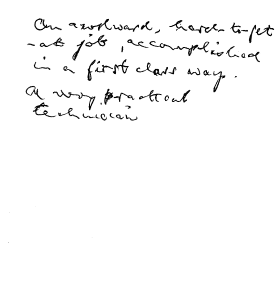 An awkward, hard-to-get
-at job, accomplished
in a first class way.
A very practical
technician